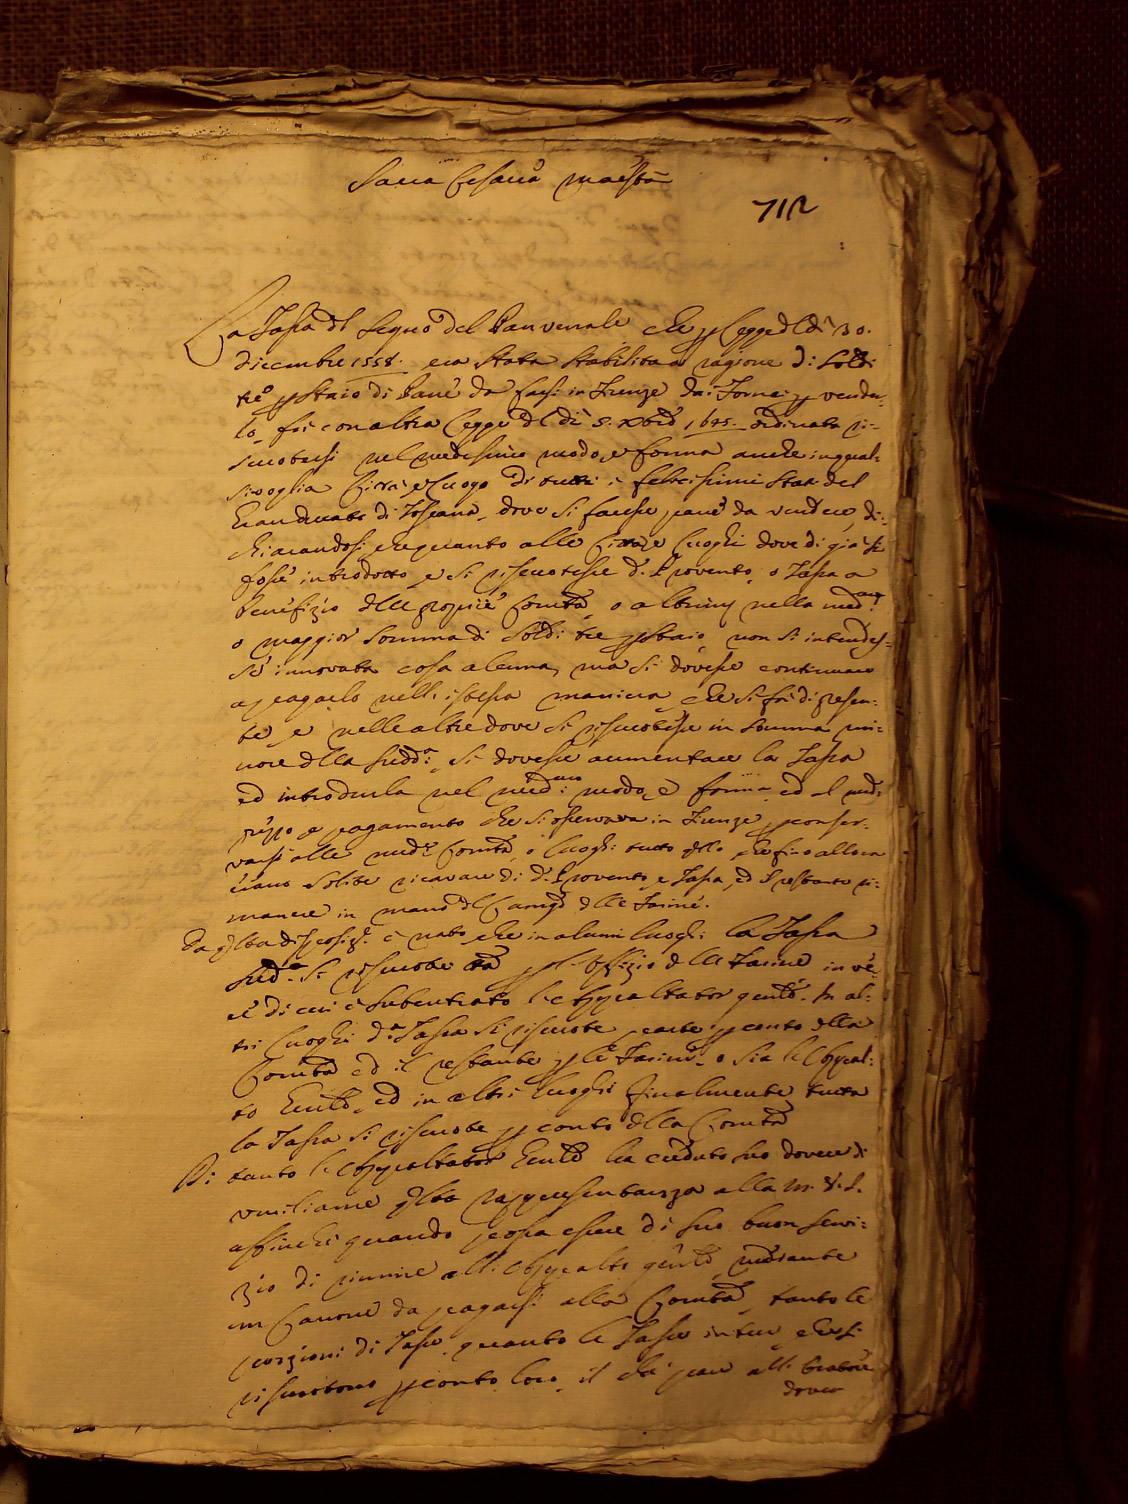 Sacra Cesarea Maestà
712
La Tassa del Segno del Pan venale che p Legge del dì 30.
dicembre 1558. era stata stabilita a ragione di Soldi
tre p staio di Pane da farsi in Firenze da i Fornai p vender-
lo, fù con altra Legge del dì 5. Xbre 1645. ordinata ri-
scuotersi nel medesimo modo, e forma anche in qual-
sivoglia Città, e Luogo di tutti i felicissimi Stati del
Granducato di Toscana, dove si facesse pane da vendere, di-
chiarandosi, che quanto alle Città, e Luoghi dove di già si
fosse introdotto, e si riscuotesse d.o Provento, o Tassa a
benefizio delle proprie Comtà, o altrui nella med.ma
o maggior somma di Soldi tre p staio, non si intendes-
se innovata cosa alcuna, ma si dovesse continuare
a pagarlo nell'istessa maniera, che si fà di presen-
te, e nelle altre dove si riscuotesse in somma mi-
nore della sudd.a, si dovesse aumentare la Tassa
ed introdurla nel med.mo modo, e forma, ed al med.
prezzo e pagamento che si osservava in Firenze p conser-
varsi alle med.e Comtà, o luoghi tutto qllo, che fino allora
erano solite ricavare di d.o Provento, e Tassa, ed il restante ri-
manere in mano del Camgo delle Farine.
Da qsta disposize. è nato che in alcuni luoghi la Tassa
sud.a si riscuote tta p l'Offizio delle Farine in ve-
ce di cui è subentrato l'Appaltator genle. In al-
tri Luoghi d.a Tassa si riscuote parte p conto della
Comtà ed il restante p le Farine, o sia l'Appal-
to Genle, ed in altri luoghi finalmente tutta
la Tassa si riscuote p conto della Comtà
Pi tanto l'Appaltator Genle ha creduto suo dovere di
umiliarne qsta rappresentanza alla M. V. I.
affinchè quando possa essere di suo buon servi-
zio di riunire all'Appalto genle, mediante
un Canone da pagarsi alla Comtà, tanto le
porzioni di Tasse, quanto le Tasse intere, che si
riscuotono p conto loro, il che pare
dover